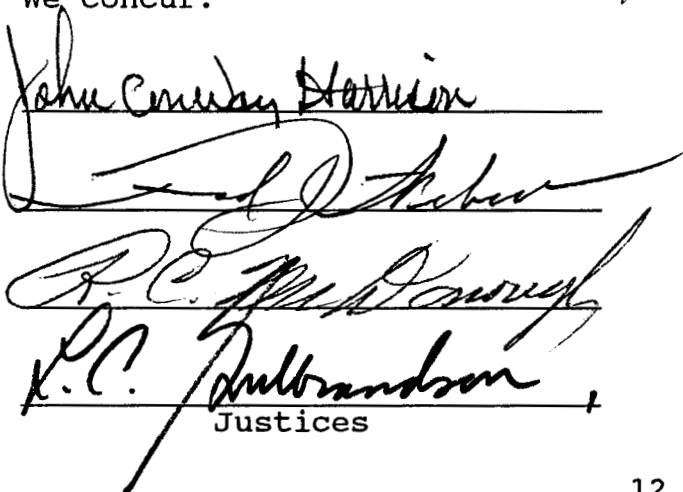 We concur:
John Conway Harrison
Fred J. Weber
R. C. McDonough
L. C. Gulbrandson
Justices
12